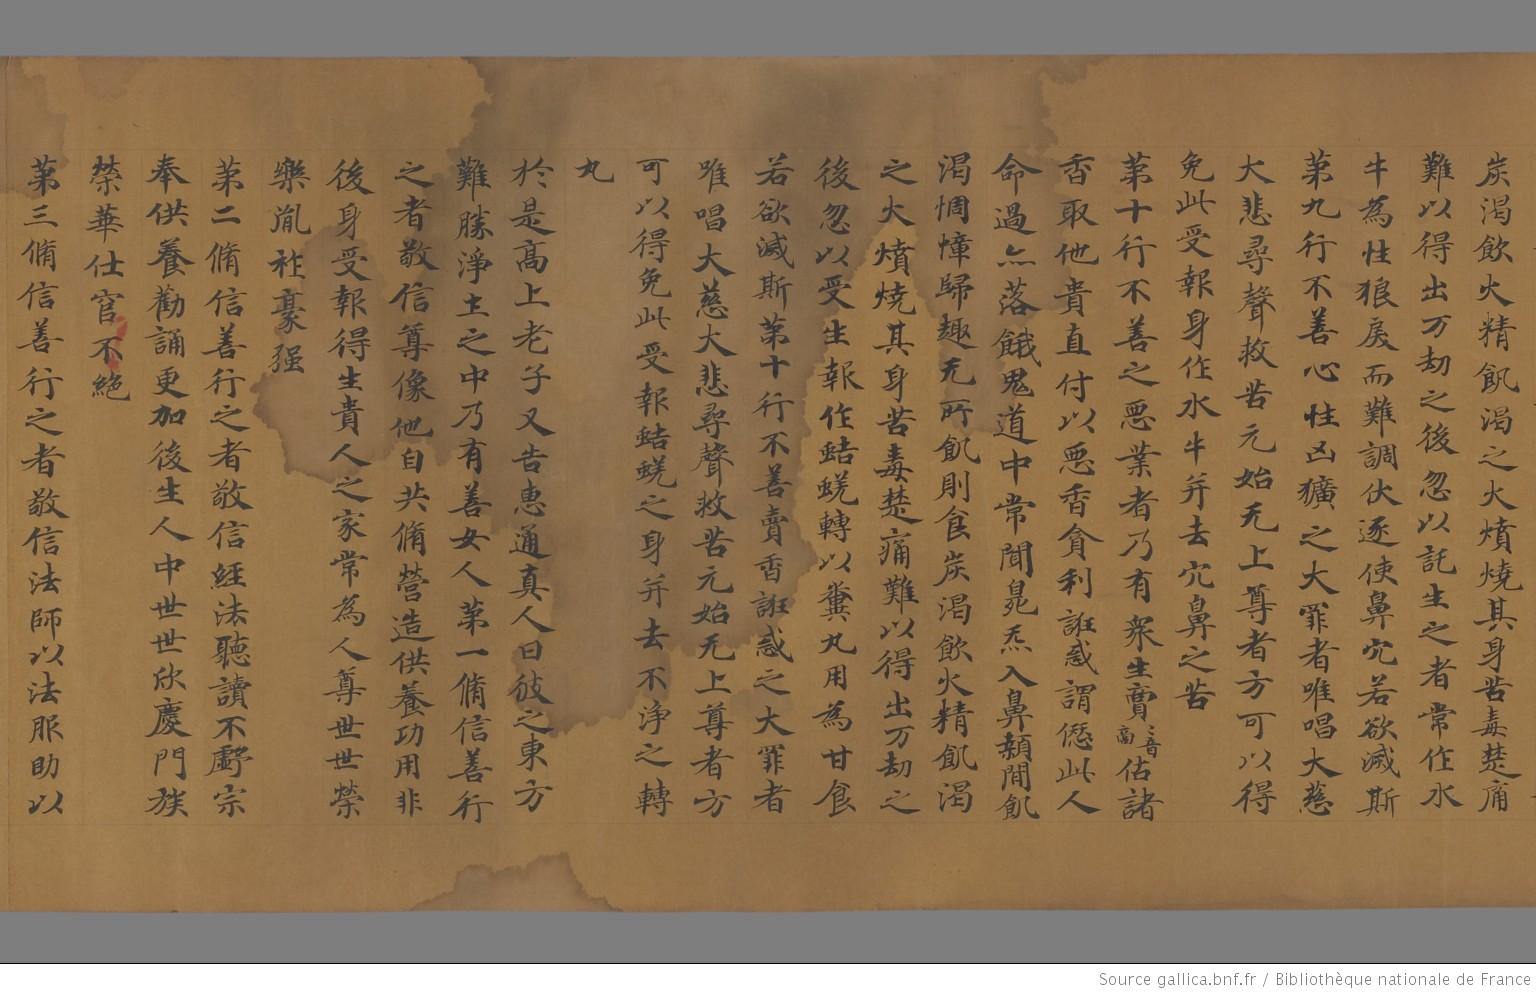 炭渴飲火精飢渴之火燌燒其身苦毒楚痛
難以得出万劫之後忽以託生之者常作水
牛為性狼戾而難調伏逐使鼻穴若欲滅斯
第九行不善心性凶獷之大罪者唯唱大慈
大悲尋聲救苦元始无上尊者方可以得
免此受報身作水牛并去穴鼻之苦
第十行不善之惡業者乃有衆生賣音啇估諸
香取他貴直付以惡香貪利誑惑謂此人
命過亦落餓鬼道中常聞臰炁入鼻頼間飢
渴惆慞歸趣无所飢則食炭渴飲火精飢渴
之火燌燒其身苦毒楚痛難以得出万劫之
後忽以受生報作蛣蜣轉以糞丸用為甘食
若欲滅斯第十行不善賣香誑惑之大罪者
唯唱大慈大悲尋聲救苦元始无上尊者方
可以得免此受報蛣蜣之身并去不淨之轉
丸
於是高上老子又告惠通真人曰彼之東方
難勝淨土之中乃有善女人第一脩信善行
之者敬信尊像他自共脩營造供養功用非
後身受報得生貴人之家常為人尊世世榮
樂胤祚豪强
第二脩信善行之者敬信經法聽讀不斁宗
奉供養勸誦更加後生人中世世欣慶門族
榮華仕官不絶
第三脩信善行之者敬信法師以法服助以
Source gallica.bnf.fr / Bibliothèque nationale de France